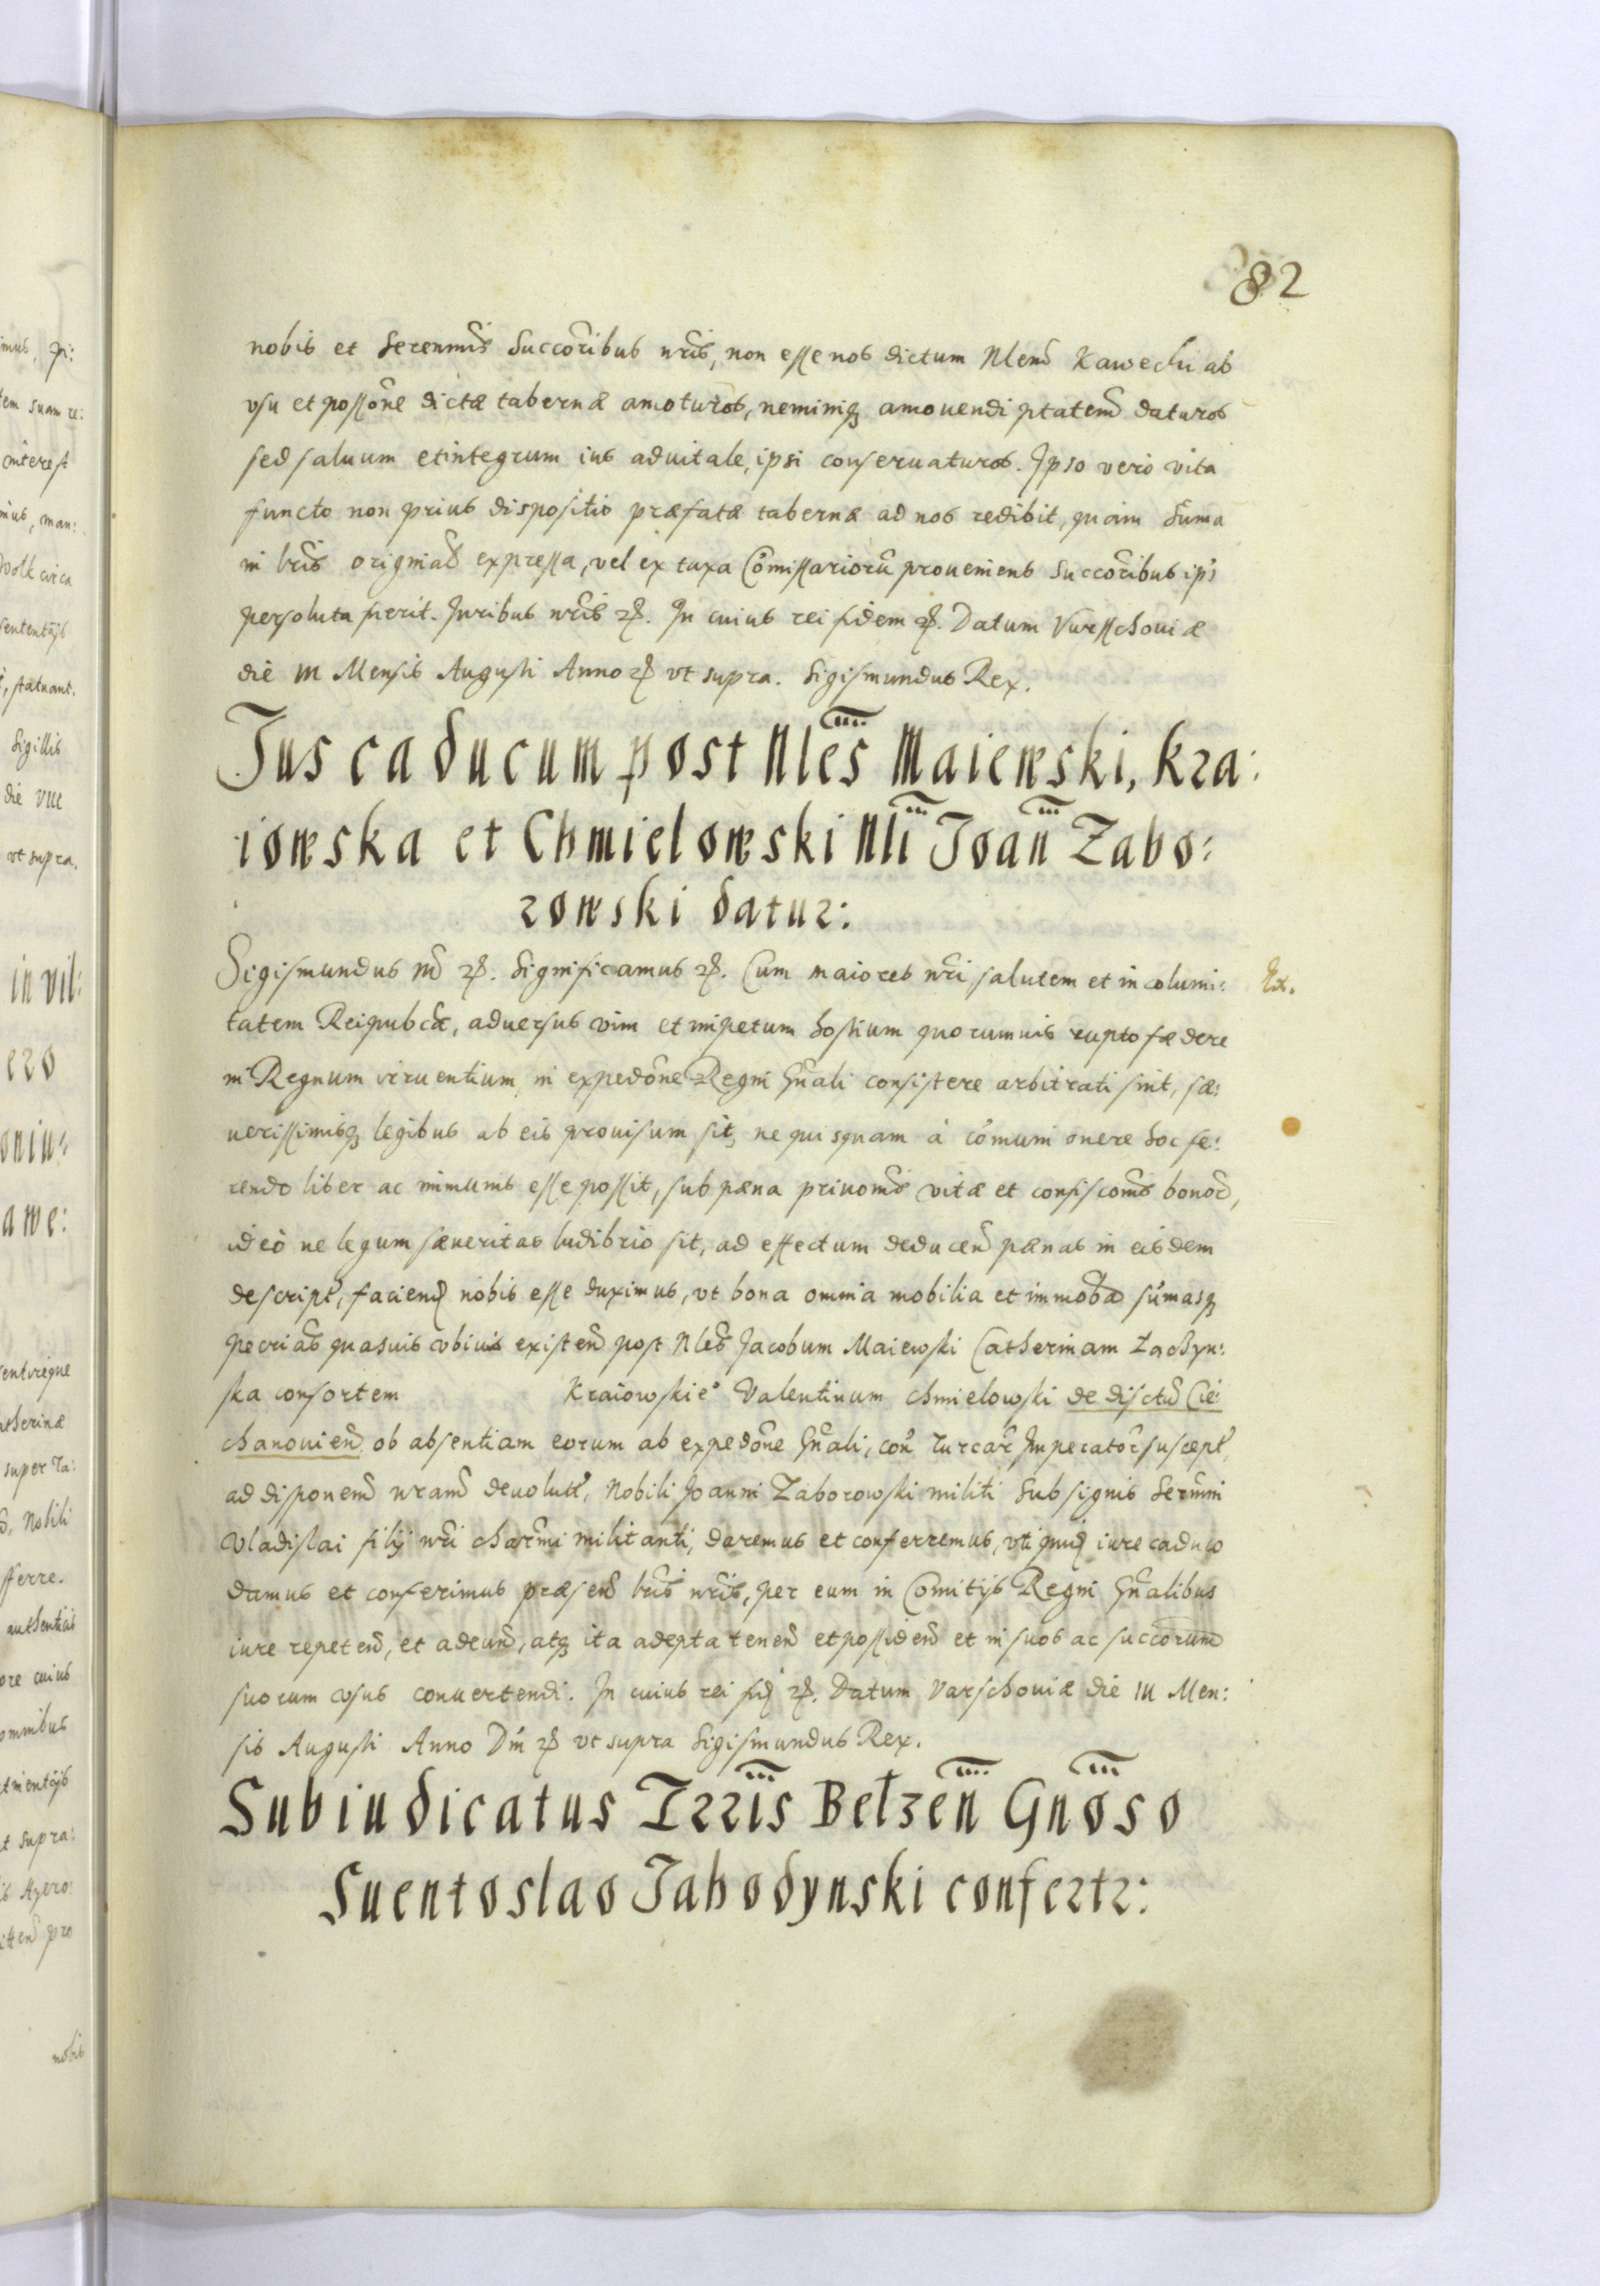 82
nobis et Serenmis Succoribus nris, non esse nos dictum Nlem Kawecki ab
vsu et possone dictæ tabernæ amoturos, neminiq amouendi ptatem daturos
sed saluum et integrum ius aduitale, ipsi conseruaturos. Ipso vero vita
functo non prius dispositio præfatæ tabernæ ad nos redibit, quam Suma
in lris originalib expressa, vel ex taxa Comissarioru proueniens Succoribus ipsi
persoluta fuerit. Iuribus nris etc. In cuius rei fidem etc. Datum Varsschouiæ
die III Mensis Augusti Anno etc vt supra. Sigismundus Rex.
Jus caducum post Nles Maiewski, Kra:
iowska et Chmielowski Nli Joan Zabo:
rowski datur:
Sigismundus III etc. Significamus etc. Cum maiores nri salutem et incolumi:
tatem Reipubcæ, aduersus vim et impetum hostium quorumuis rupto fædere
in Regnum irruentium in expedone Regni Gnali consistere arbitrati sint, sæ:
uerissimisq legibus ab eis prouisum sit, ne quisquam à comuni onere hoc fe:
rendo liber ac immunis esse possit, sub pæna priuonis vitæ et confisconis bonor,
ideò ne legum sæueritas ludibrio sit, ad effectum deducend pænas in eisdem
descript, faciend nobis esse duximus, vt bona omnia mobilia et immoba sumasq
pecrias quasuis vbiuis existen post Nles Jacobum Maiewski Catherinam Zachyn:
ska consortem Kraiowskie° Valentinum Chmielowski de disctu Cie:
chanouien ob absentiam eorum ab expedone Gnali, con Turcar Imperator suscept,
ad disponem nram deuolut, Nobili Joanni Zaborowski militi Sub signis Sermi
Vladislai filij nri charmi militanti, daremus et conferremus, vti quid iure caduco
damus et conferimus præsen lris nris, per eum in Comitijs Regni Gnalibus
iure repeten, et adeun, atq ita adepta tenen et possiden et in suos ac succorum
suorum vsus conuertendi. In cuius rei fid etc. Datum Varschouiæ die III Men:
sis Augusti Anno Dni etc vt supra Sigismundus Rex.
Subiudicatus Trris Belzen Gnoso
Suentoslao Jahodynski confertr: